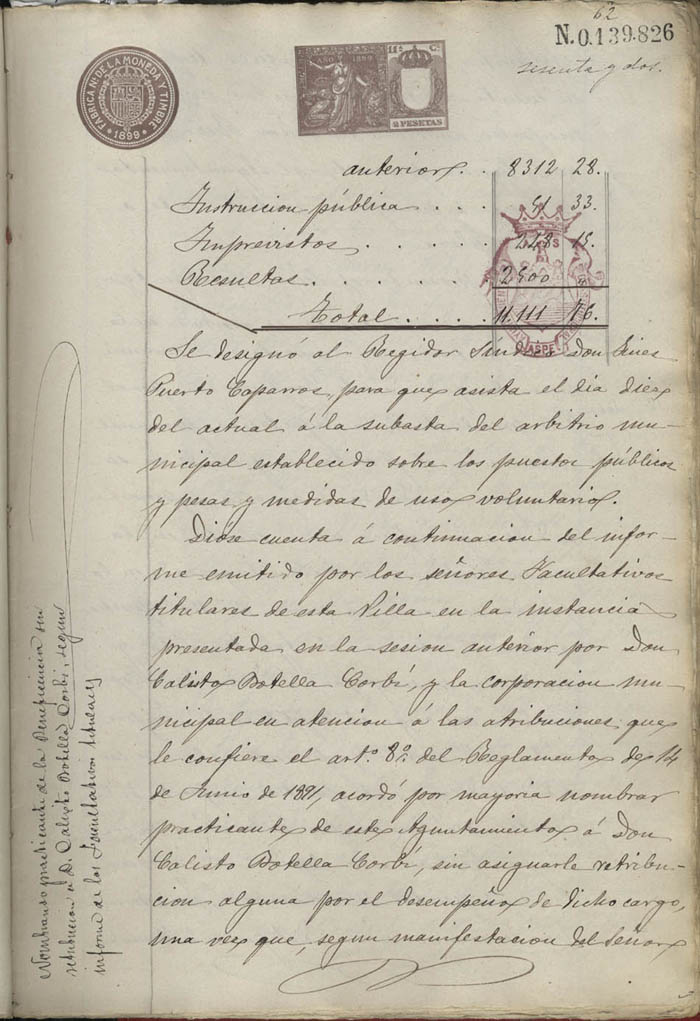 62
N.0.139.826
sesenta y dos.
FABRICA Nal DE LA MONEDA Y TIMBRE
1899
AÑO 1899
11ª C.
2 PESETAS
anterior . . 8312 28.
Instruccion pública . . . 41 33.
Imprevistos . . . . . 248 15.
Resultas . . . . . 2500
Total . . . . 11.111 76.
ASPE
Se designó al Regidor Síndico don Gines
Puerto Caparros, para que asista el dia diez
del actual á la subasta del arbitrio mu-
nicipal establecido sobre los puestos públicos
y pesas y medidas de uso voluntario.
Diose cuenta á continuacion del infor-
me emitido por los señores Facultativos
titulares de esta Villa en la instancia
presentada en la sesion anterior por Don
Calisto Botella Corbí, y la corporacion mu-
nicipal en atencion á las atribuciones que
le confiere el artº. 8º. del Reglamento de 14
de Junio de 1891, acordó por mayoria nombrar
practicante de este Ayuntamiento á Don
Calisto Botella Corbí, sin asignarle retribu-
cion alguna por el desempeño de dicho cargo,
una vez que, segun manifestacion del Señor
Nombrando practicante de la Beneficencia sin
retribucion a D. Calixto Botella Corbi, segun
informe de los Facultativos titulares